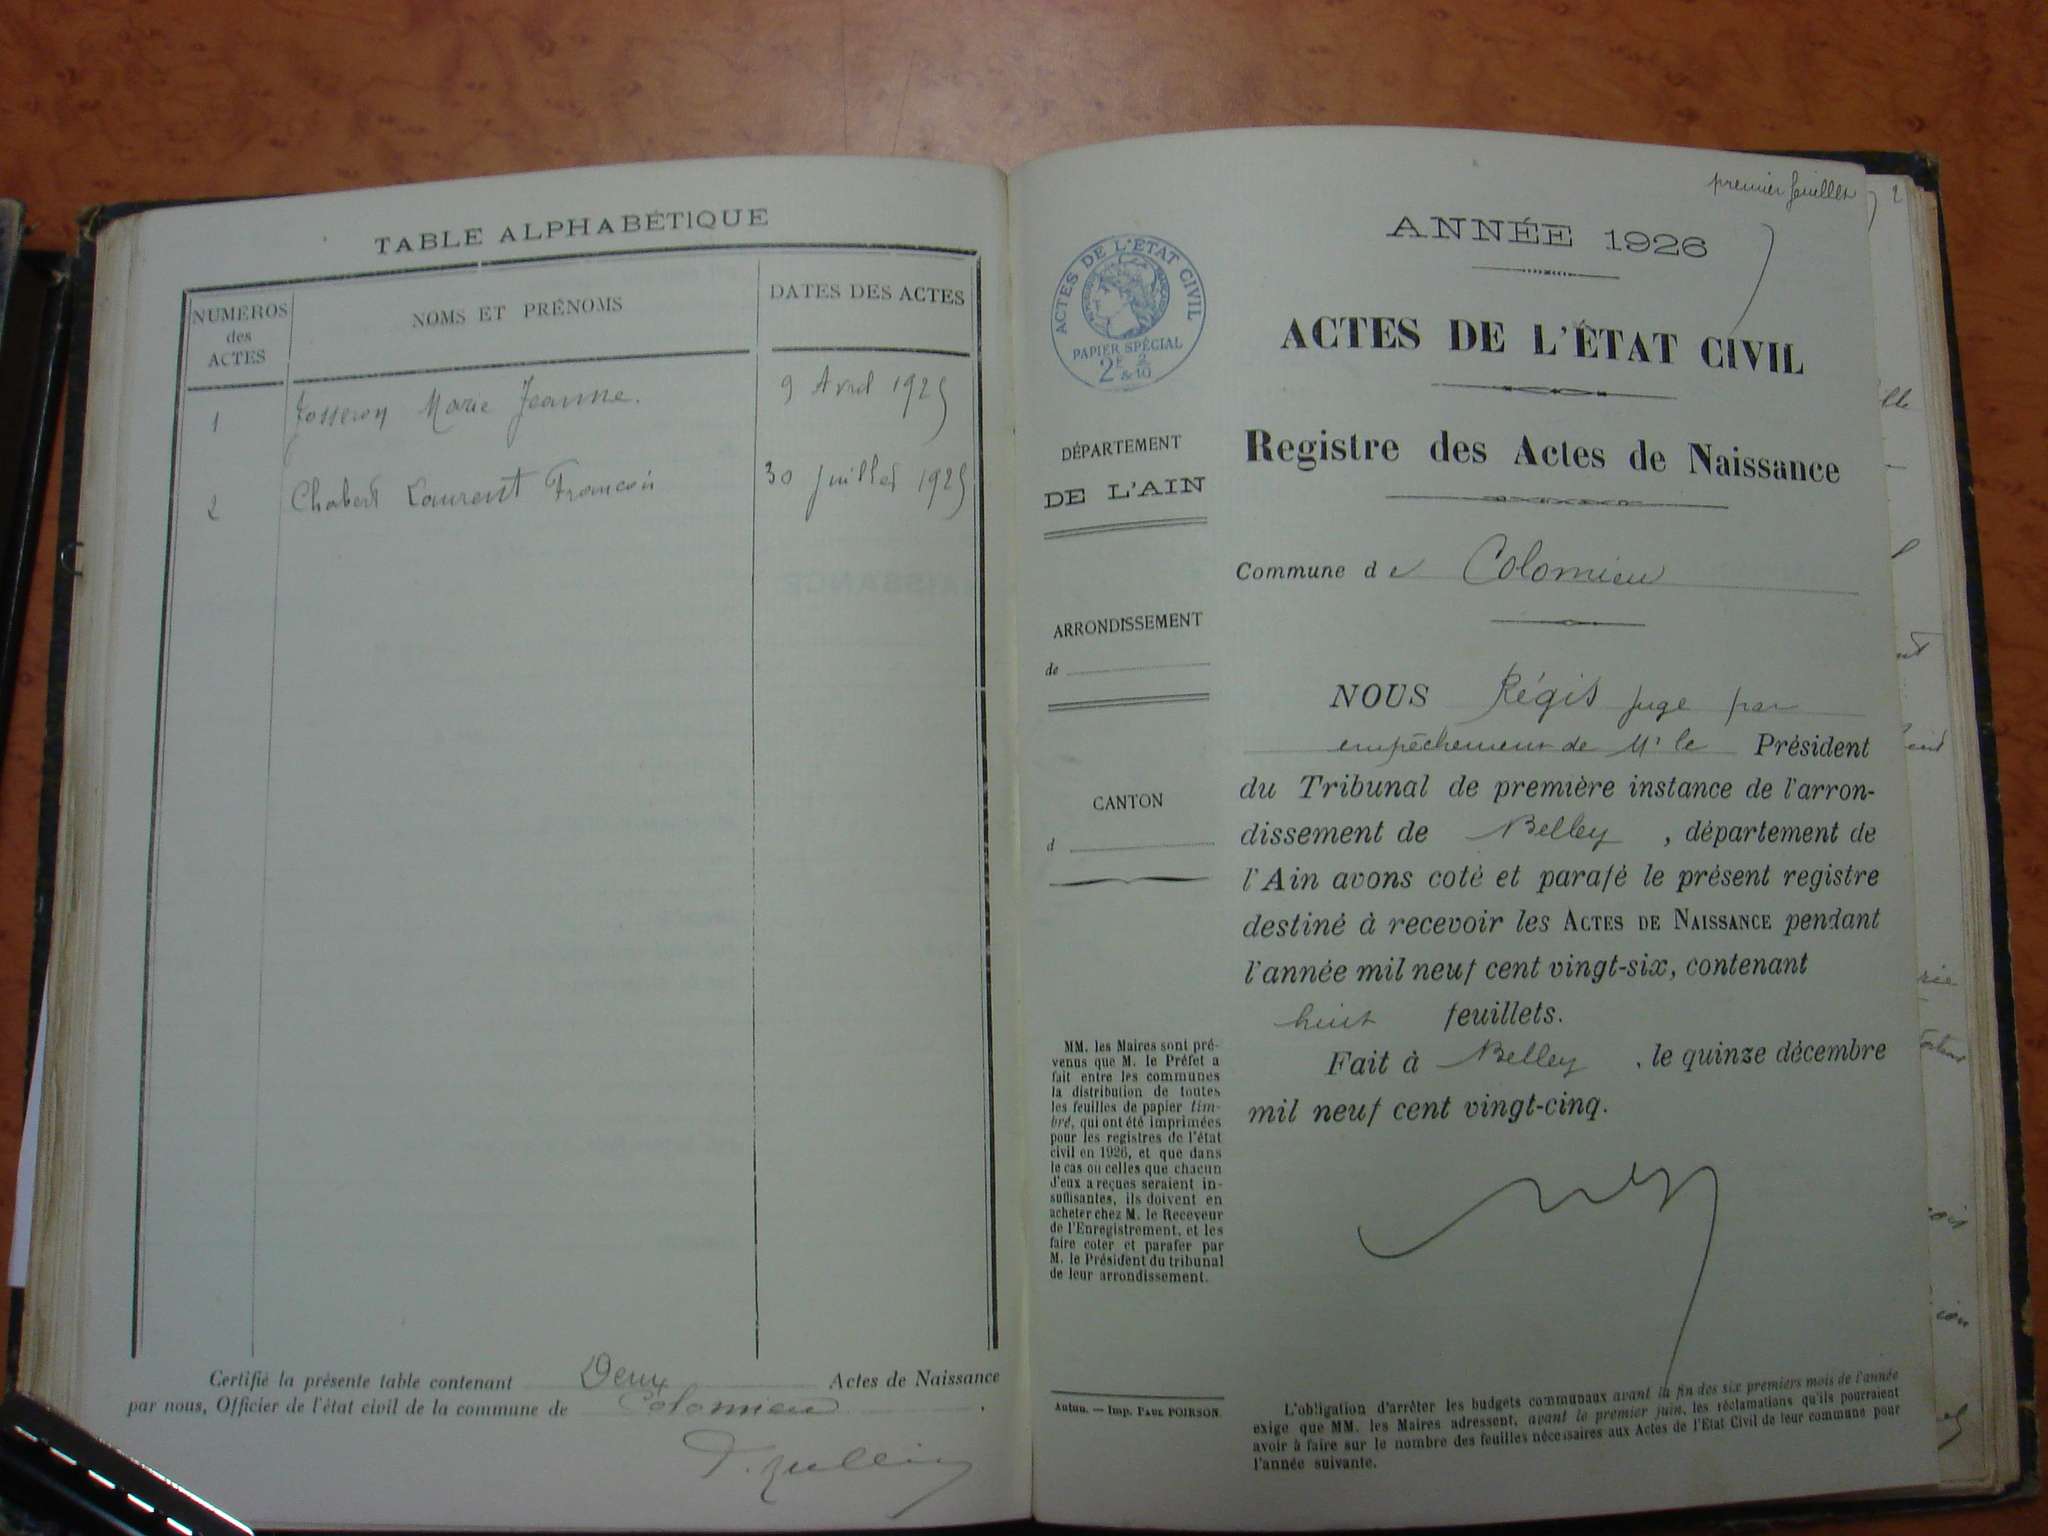 TABLE ALPHABÉTIQUE
NUMÉROS
des
ACTES
NOMS ET PRÉNOMS
DATES DES ACTES
1 Josseron Marie Jeanne. 9 Avril 1925
2 Chabert Laurent François 30 juillet 1925
Certifié la présente table contenant Deux Actes de Naissance
par nous, Officier de l'état civil de la commune de Colomieu.
premier feuillet
2
ANNÉE 1926
ACTES DE L'ETAT CIVIL
PAPIER SPÉCIAL
2F & 2/10
ACTES DE L'ÉTAT CIVIL
Registre des Actes de Naissance
Commune de Colomieu
DÉPARTEMENT
DE L'AIN
ARRONDISSEMENT
de
CANTON
d
NOUS Régis juge par
empêchement de Mr le Président
du Tribunal de première instance de l'arron-
dissement de Belley, département de
l'Ain avons coté et parafé le présent registre
destiné à recevoir les ACTES DE NAISSANCE pendant
l'année mil neuf cent vingt-six, contenant
huit feuillets.
Fait à Belley, le quinze décembre
mil neuf cent vingt-cinq.
MM. les Maires sont pré-
venus que M. le Préfet a
fait entre les communes
la distribution de toutes
les feuilles de papier tim-
bré, qui ont été imprimées
pour les registres de l'état
civil en 1926, et que dans
le cas ou celles que chacun
d'eux a reçues seraient in-
suffisantes, ils doivent en
acheter chez M. le Receveur
de l'Enregistrement, et les
faire coter et parafer par
M. le Président du tribunal
de leur arrondissement.
Autun. — Imp. PAUL POIRSON.
L'obligation d'arrêter les budgets communaux avant la fin des six premiers mois de l'année
exige que MM. les Maires adressent, avant le premier juin, les réclamations qu'ils pourraient
avoir à faire sur le nombre des feuilles nécessaires aux Actes de l'Etat Civil de leur commune pour
l'année suivante.